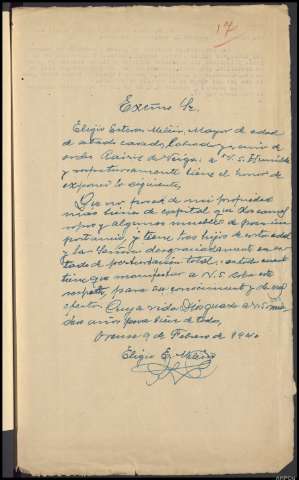 17
Excmo Sr.
Eligio Esteva Meliá, Mayor de edad
de estado casado, labrador y vecino de
a V. S. Humilde
y respetuosamente tiene el honor de
exponer lo siguiente,
Que no posee de mi propiedad
mas bienes de capital que dos camas
ropas y algunos muebles de poca im
portancia, y tiene tres hijos de corta edad
y la Señora desgraciadamente en es-
tado de perturbación total:
tiene que manifestar a V. S. sobre este
respecto, para su conocimiento y demás
efectos. Cuya vida Dios guarde a V. S. mu-
chos años para bien de todos,
Orense 9 de Febrero de 1940
Eligio E.